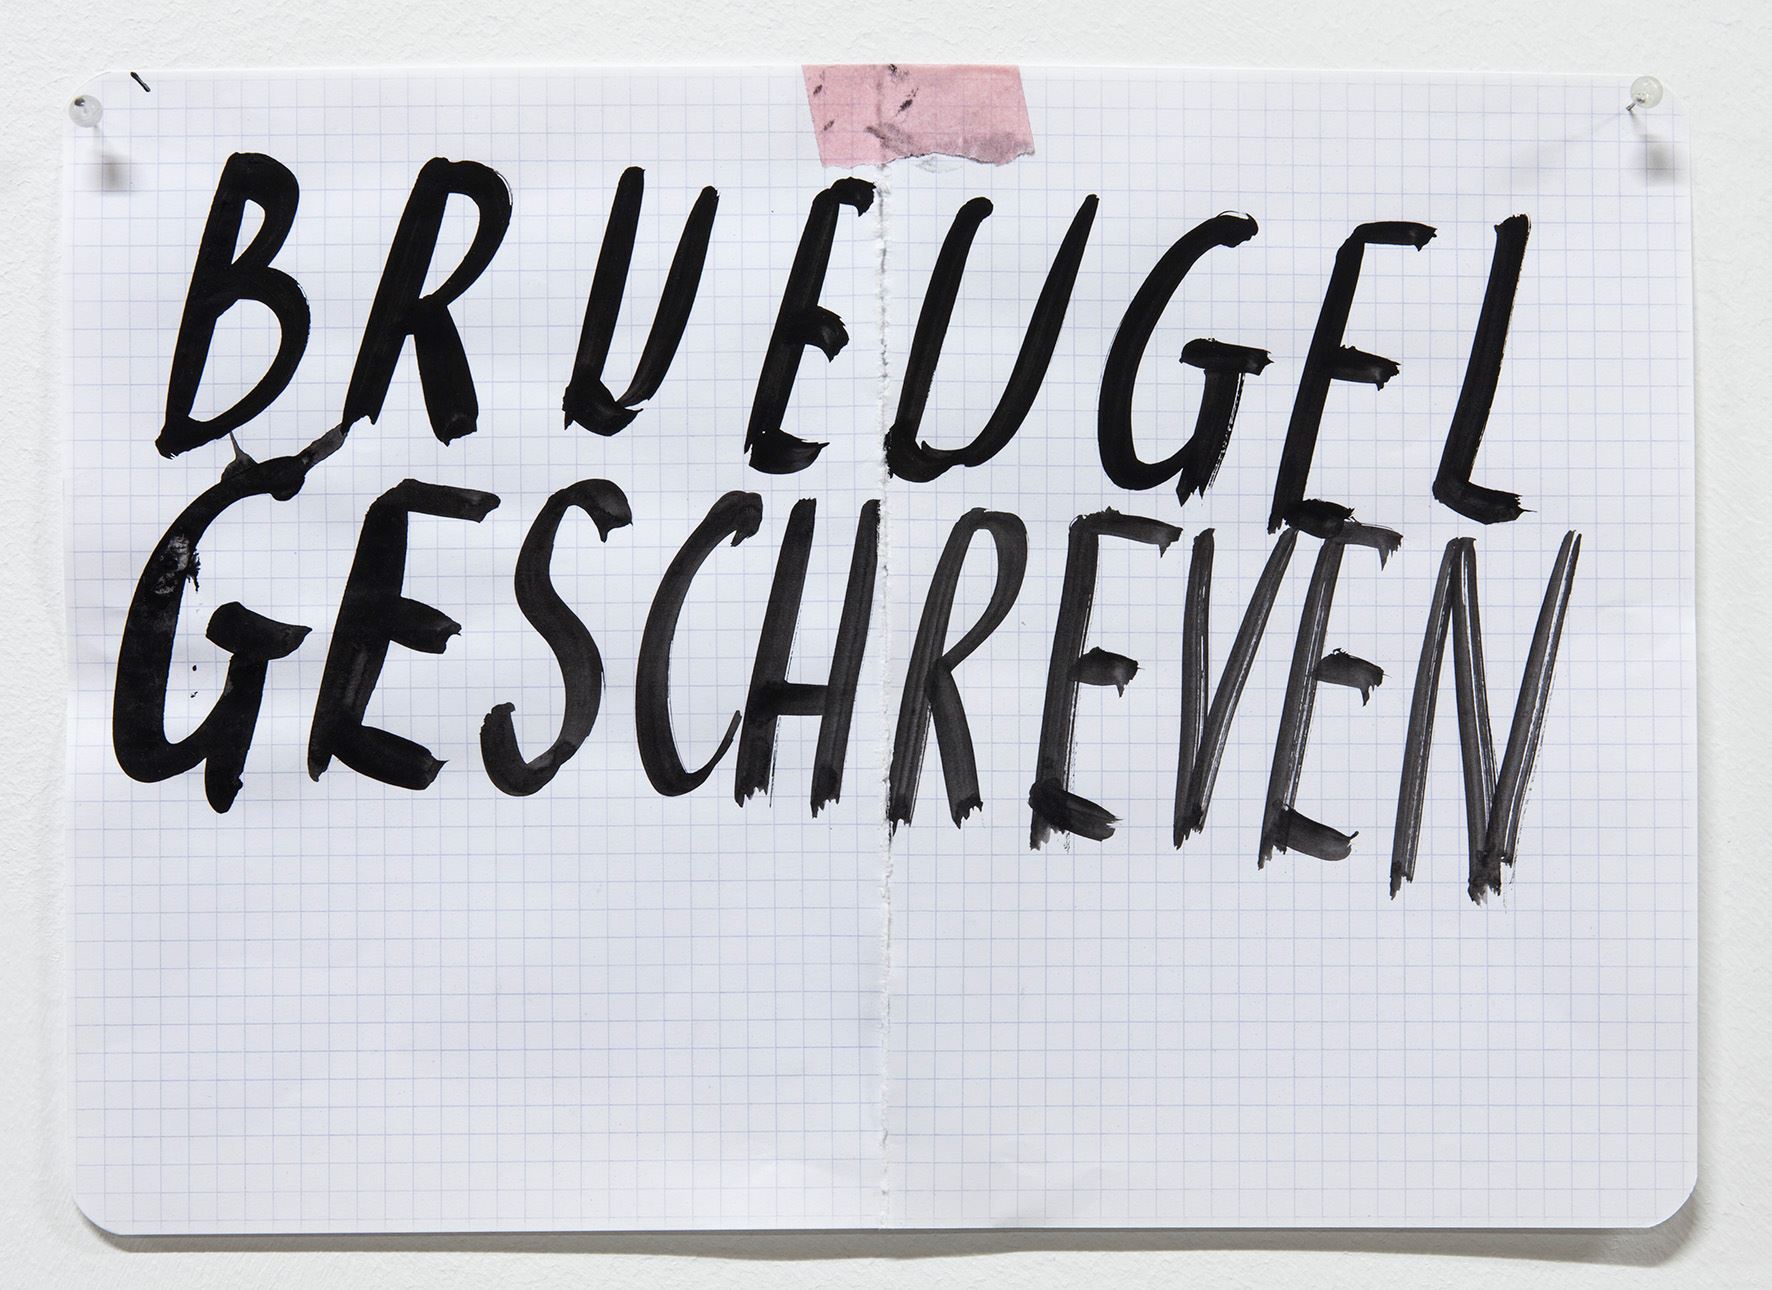 BRUEUGEL
GESCHREVEN